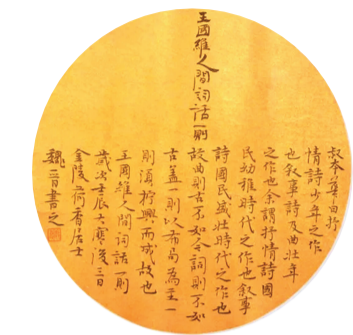 王國維人間詞話一則
叔本華曰抒
情詩少年之作
也叙事詩及曲壮年
之作也余謂抒情詩國
民幼稚時代之作也叙事
詩國民盛壮時代之作也
故曲則古不如今詞則今不如
古盖一則以布局為主一
則須佇興而成故也
王國維人間詞話一則
歲次壬辰大寒後三日
金陵荷香居士
魏書之